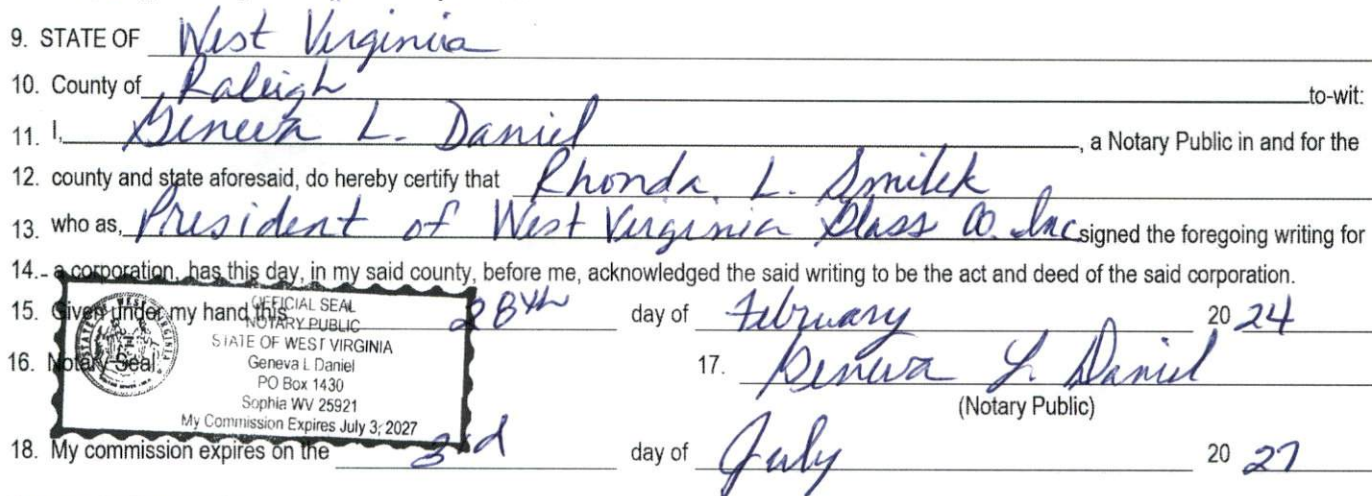 9. STATE OF West Virginia
10. County of Raleigh to-wit:
11. I, Geneva L. Daniel, a Notary Public in and for the
12. county and state aforesaid, do hereby certify that Rhonda L. Smilek
13. who as, President of West Virginia Glass Co. Inc signed the foregoing writing for
14. a corporation, has this day, in my said county, before me, acknowledged the said writing to be the act and deed of the said corporation.
15. Given under my hand this 28th day of February 20 24
16. Notary Seal 17. Geneva L. Daniel
(Notary Public)
STATE OF WEST VIRGINIA
OFFICIAL SEAL
NOTARY PUBLIC
STATE OF WEST VIRGINIA
Geneva L Daniel
PO Box 1430
Sophia WV 25921
My Commission Expires July 3, 2027
18. My commission expires on the 3rd day of July 20 27